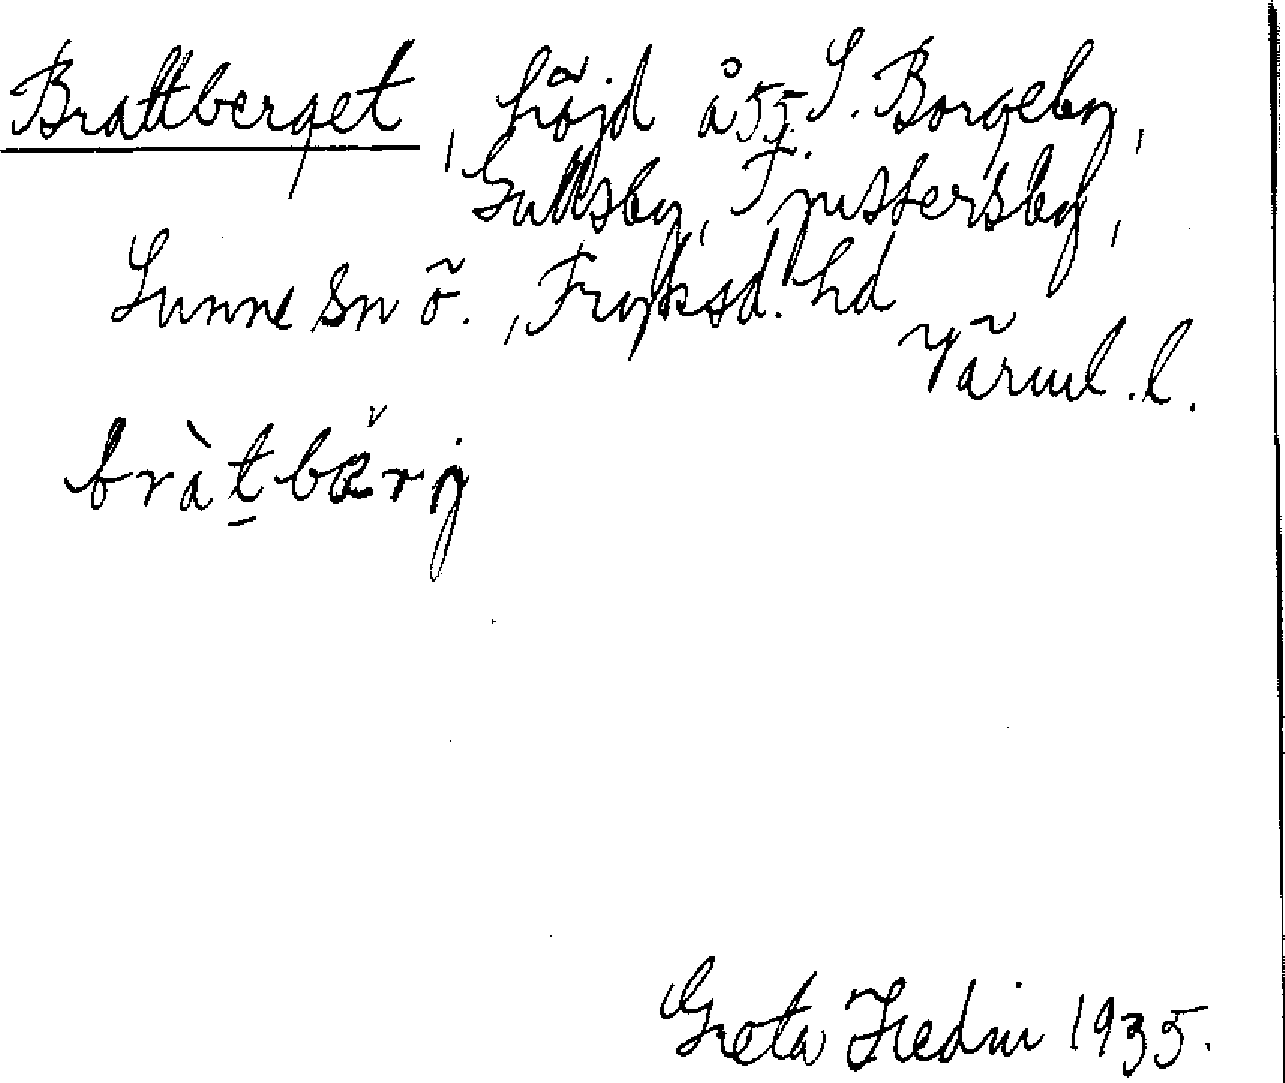 Brattberget, höjd å 55. S. Borgeby,
Gullsby, Tjustersby,
Sunne sn ö., Fryksd. hd
Värml. l.
bràtbærj
Greta Hedin 1935.